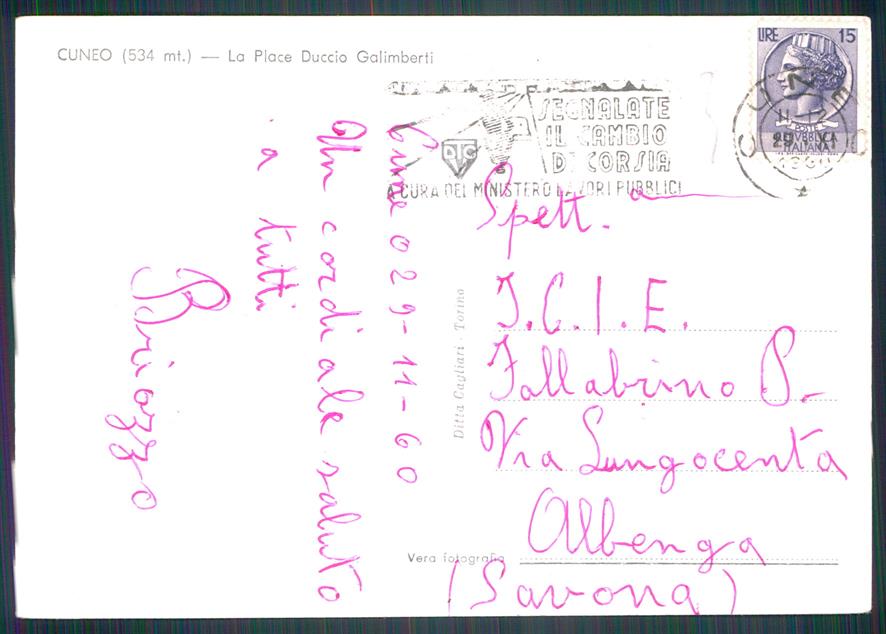 CUNEO (534 mt.) — La Place Duccio Galimberti
LIRE 15
POSTE
REPUBBLICA
ITALIANA
SEGNALATE
IL CAMBIO
DI CORSIA
A CURA DEL MINISTERO LAVORI PUBBLICI
Cuneo 29-11-60
Un cordiale saluto
a tutti
Briozzo
Ditta Cagliari - Torino
Spett.
I.C.I.E.
Fallabrino P.
Via Lungocenta
Albenga
(Savona)
Vera fotografia